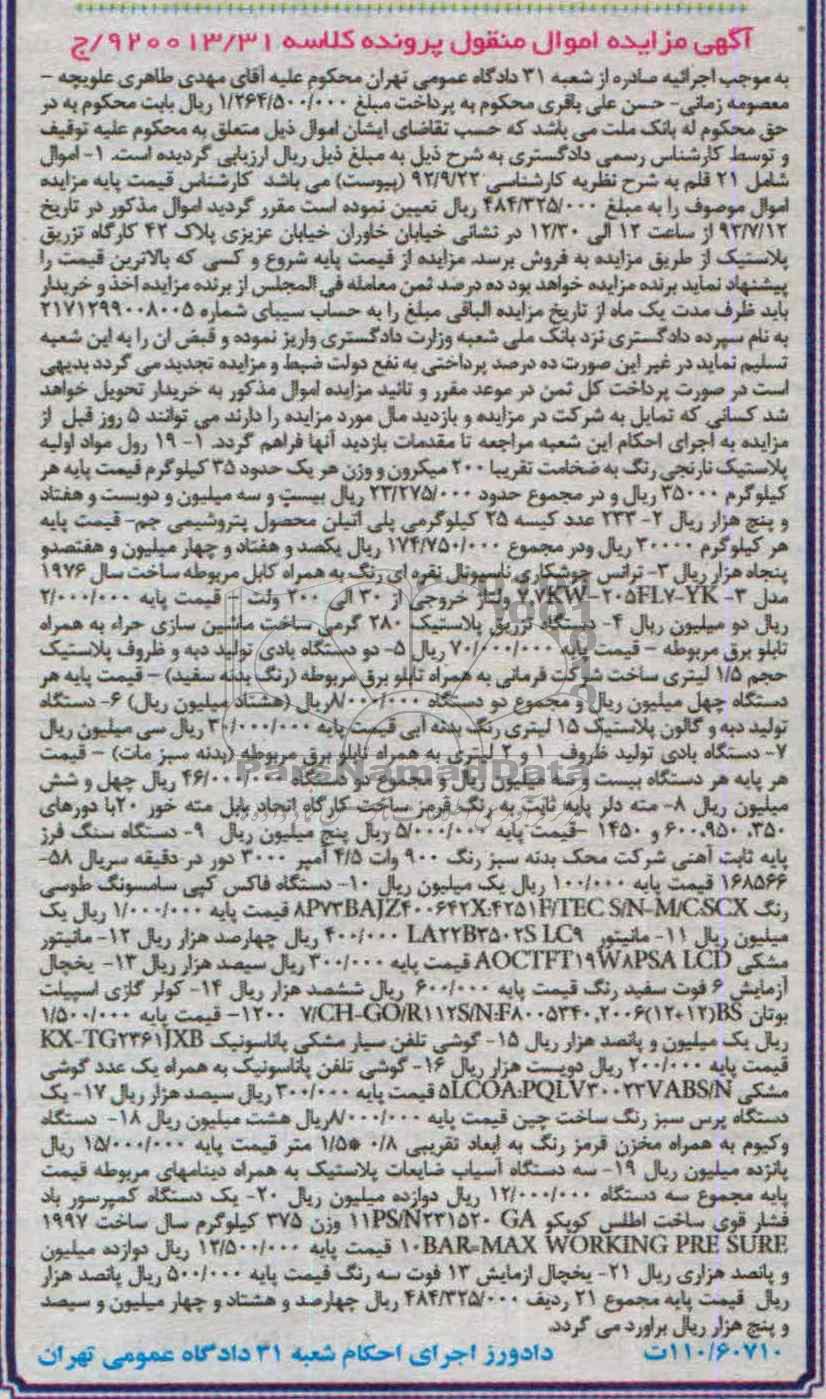 آگهی مزایده اموال منقول پرونده کلاسه ۹۲۰۰۱۳/۳۱/ج
به موجب اجرائیه صادره از شعبه ۳۱ دادگاه عمومی تهران محکوم علیه آقای مهدی طاهری علویچه –
معصومه زمانی- حسن علی باقری محکوم به پرداخت مبلغ ۱/۲۶۴/۵۰۰/۰۰۰ ریال بابت محکوم به در
حق محکوم له بانک ملت می باشد که حسب تقاضای ایشان اموال ذیل متعلق به محکوم علیه توقیف
و توسط کارشناس رسمی دادگستری به شرح ذیل به مبلغ ذیل ریال ارزیابی گردیده است. ۱- اموال
شامل ۲۱ قلم به شرح نظریه کارشناسی ۹۲/۹/۲۲ (پیوست) می باشد کارشناس قیمت پایه مزایده
اموال موصوف را به مبلغ ۴۸۴/۳۲۵/۰۰۰ ریال تعیین نموده است مقرر گردید اموال مذکور در تاریخ
۹۳/۷/۱۲ از ساعت ۱۲ الی ۱۲/۳۰ در نشانی خیابان خاوران خیابان عزیزی پلاک ۴۲ کارگاه تزریق
پلاستیک از طریق مزایده به فروش برسد. مزایده از قیمت پایه شروع و کسی که بالاترین قیمت را
پیشنهاد نماید برنده مزایده خواهد بود ده درصد ثمن معامله فی المجلس از برنده مزایده اخذ و خریدار
باید ظرف مدت یک ماه از تاریخ مزایده الباقی مبلغ را به حساب سیبای شماره ۲۱۷۱۲۹۹۰۰۸۰۰۵
به نام سپرده دادگستری نزد بانک ملی شعبه وزارت دادگستری واریز نموده و قبض ان را به این شعبه
تسلیم نماید در غیر این صورت ده درصد پرداختی به نفع دولت ضبط و مزایده تجدید می گردد بدیهی
است در صورت پرداخت کل ثمن در موعد مقرر و تائید مزایده اموال مذکور به خریدار تحویل خواهد
شد کسانی که تمایل به شرکت در مزایده و بازدید مال مورد مزایده را دارند می توانند ۵ روز قبل از
مزایده به اجرای احکام این شعبه مراجعه تا مقدمات بازدید آنها فراهم گردد. ۱- ۱۹ رول مواد اولیه
پلاستیک نارنجی رنگ به ضخامت تقریبا ۲۰۰ میکرون و وزن هر یک حدود ۳۵ کیلوگرم قیمت پایه هر
کیلوگرم ۳۵۰۰۰ ریال و در مجموع حدود ۲۳/۲۷۵/۰۰۰ ریال بیست و سه میلیون و دویست و هفتاد
و پنج هزار ریال ۲- ۲۳۳ عدد کیسه ۲۵ کیلوگرمی پلی اتیلن محصول پتروشیمی جم- قیمت پایه
هر کیلوگرم ۳۰۰۰۰ ریال ودر مجموع ۱۷۴/۷۵۰/۰۰۰ ریال یکصد و هفتاد و چهار میلیون و هفتصدو
پنجاه هزار ریال ۳- ترانس جوشکاری ناسیونال نقره ای رنگ به همراه کابل مربوطه ساخت سال ۱۹۷۶
مدل ۳- ۷.۷KW-۲۰۵FL۷-YK ولتاژ خروجی از ۳۰ الی ۲۰۰ ولت - قیمت پایه ۲/۰۰۰/۰۰۰
ریال دو میلیون ریال ۴- دستگاه تزریق پلاستیک ۲۸۰ گرمی ساخت ماشین سازی حراء به همراه
تابلو برق مربوطه – قیمت پایه ۷۰/۰۰۰/۰۰۰ ریال ۵- دو دستگاه بادی تولید دبه و ظروف پلاستیک
حجم ۱/۵ لیتری ساخت شرکت فرمانی به همراه تابلو برق مربوطه (رنگ بدنه سفید) – قیمت پایه هر
دستگاه چهل میلیون ریال و مجموع دو دستگاه ۸/۰۰۰/۰۰۰ریال (هشتاد میلیون ریال) ۶- دستگاه
تولید دبه و گالون پلاستیک ۱۵ لیتری رنگ بدنه آبی قیمت پایه ۳۰/۰۰۰/۰۰۰ ریال سی میلیون ریال
۷- دستگاه بادی تولید ظروف ۱ و ۲ لیتری به همراه تابلو برق مربوطه (بدنه سبز مات) – قیمت
هر پایه هر دستگاه بیست و سه میلیون ریال و مجموع دو دستگاه ۴۶/۰۰۰/۰۰۰ ریال چهل و شش
میلیون ریال ۸- مته دلر پایه ثابت به رنگ قرمز ساخت کارگاه اتحاد بابل مته خور ۲۰با دورهای
۳۵۰، ۶۰۰،۹۵۰ و ۱۴۵۰ –قیمت پایه ۵/۰۰۰/۰۰۰ ریال پنج میلیون ریال ۹- دستگاه سنگ فرز
پایه ثابت آهنی شرکت محک بدنه سبز رنگ ۹۰۰ وات ۴/۵ آمپر ۳۰۰۰ دور در دقیقه سریال ۵۸-
۱۶۸۵۶۶ قیمت پایه ۱۰۰/۰۰۰ ریال یک میلیون ریال ۱۰- دستگاه فاکس کپی سامسونگ طوسی
رنگ ۸P۷۳BAJZ۴۰۰۶۴۲X:۴۲۵۱F/TEC S/N-M/C:SCX قیمت پایه ۱/۰۰۰/۰۰۰ ریال یک
میلیون ریال ۱۱- مانیتور LA۲۲B۳۵۰۲S LC۹ ۴۰۰/۰۰۰ ریال چهارصد هزار ریال ۱۲- مانیتور
مشکی AOCTFT۱۹W۸PSA LCD قیمت پایه ۳۰۰/۰۰۰ ریال سیصد هزار ریال ۱۳- یخچال
آزمایش ۶ فوت سفید رنگ قیمت پایه ۶۰۰/۰۰۰ ریال ششصد هزار ریال ۱۴- کولر گازی اسپیلت
بوتان ۷/CH-GO/R۱۱۲S/N:F۸۰۰۵۳۴۰,۲۰۰۶(۱۲+۱۲)BS ۱۲۰۰- قیمت پایه ۱/۵۰۰/۰۰۰
ریال یک میلیون و پانصد هزار ریال ۱۵- گوشی تلفن سیار مشکی پاناسونیک KX-TG۲۳۶۱JXB
قیمت پایه ۲۰۰/۰۰۰ ریال دویست هزار ریال ۱۶- گوشی تلفن پاناسونیک به همراه یک عدد گوشی
مشکی ۵LCOA:PQLV۳۰۰۲۳VABS/N قیمت پایه ۳۰۰/۰۰۰ ریال سیصد هزار ریال ۱۷- یک
دستگاه پرس سبز رنگ ساخت چین قیمت پایه ۸/۰۰۰/۰۰۰ریال هشت میلیون ریال ۱۸- دستگاه
وکیوم به همراه مخزن قرمز رنگ به ابعاد تقریبی ۰/۸ *۱/۵ متر قیمت پایه ۱۵/۰۰۰/۰۰۰ ریال
پانزده میلیون ریال ۱۹- سه دستگاه آسیاب ضایعات پلاستیک به همراه دینامهای مربوطه قیمت
پایه مجموع سه دستگاه ۱۲/۰۰۰/۰۰۰ ریال دوازده میلیون ریال ۲۰- یک دستگاه کمپرسور باد
فشار قوی ساخت اطلس کوپکو ۱۱PS/N۲۳۱۵۲۰ GA وزن ۳۷۵ کیلوگرم سال ساخت ۱۹۹۷
۱۰BAR=MAX WORKING PRE SURE قیمت پایه ۱۲/۵۰۰/۰۰۰ ریال دوازده میلیون
و پانصد هزاری ریال ۲۱- یخچال ازمایش ۱۳ فوت سه رنگ قیمت پایه ۵۰۰/۰۰۰ ریال پانصد هزار
ریال قیمت پایه مجموع ۲۱ ردیف ۴۸۴/۳۲۵/۰۰۰ ریال چهارصد و هشتاد و چهار میلیون و سیصد
و پنج هزار ریال براورد می گردد.
۱۱۰/۶۰۷۱۰ت دادورز اجرای احکام شعبه ۳۱ دادگاه عمومی تهران
ParsNamadData